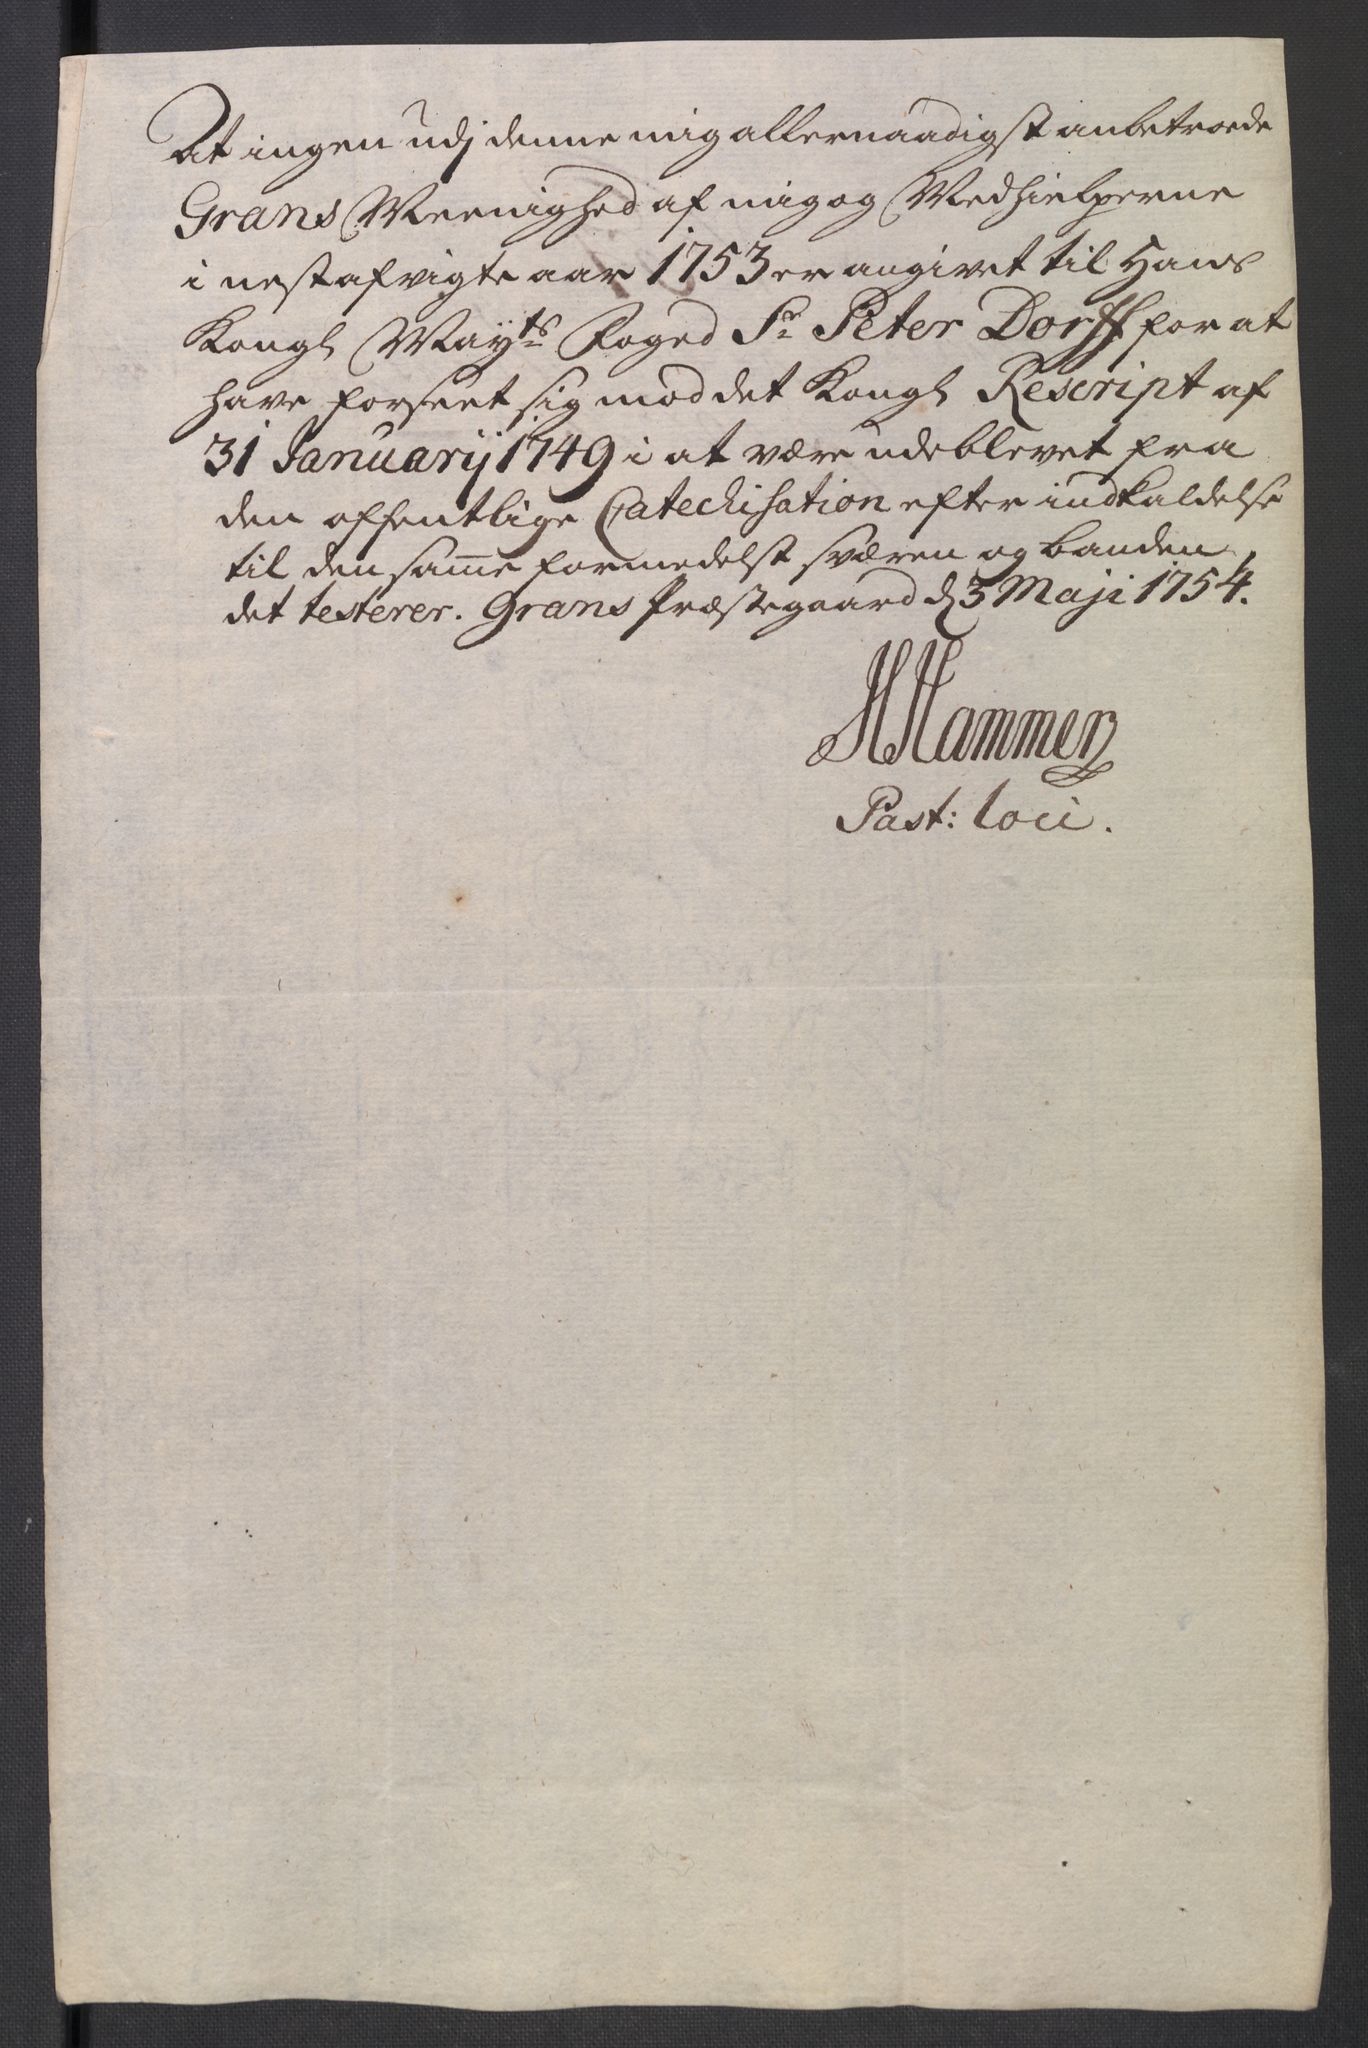 At ingen udj denne mig allernaadigst anbetroede
Grans Meenighed af mig og Medhielperne
i nestafvigte aar 1753 er angivet til Hans
Kongl Mayts Foged Sr Peter Dorff for at
have forseet sig mod det Kongl Rescript af
31 Januarij 1749 i at være udeblevet fra
den offentlige Catechisation efter indkaldelse
til den samme formedelst sværen og banden,
det testerer. Grans Præstegaard d 3 Maji 1754.
HHammer
Past: loci.